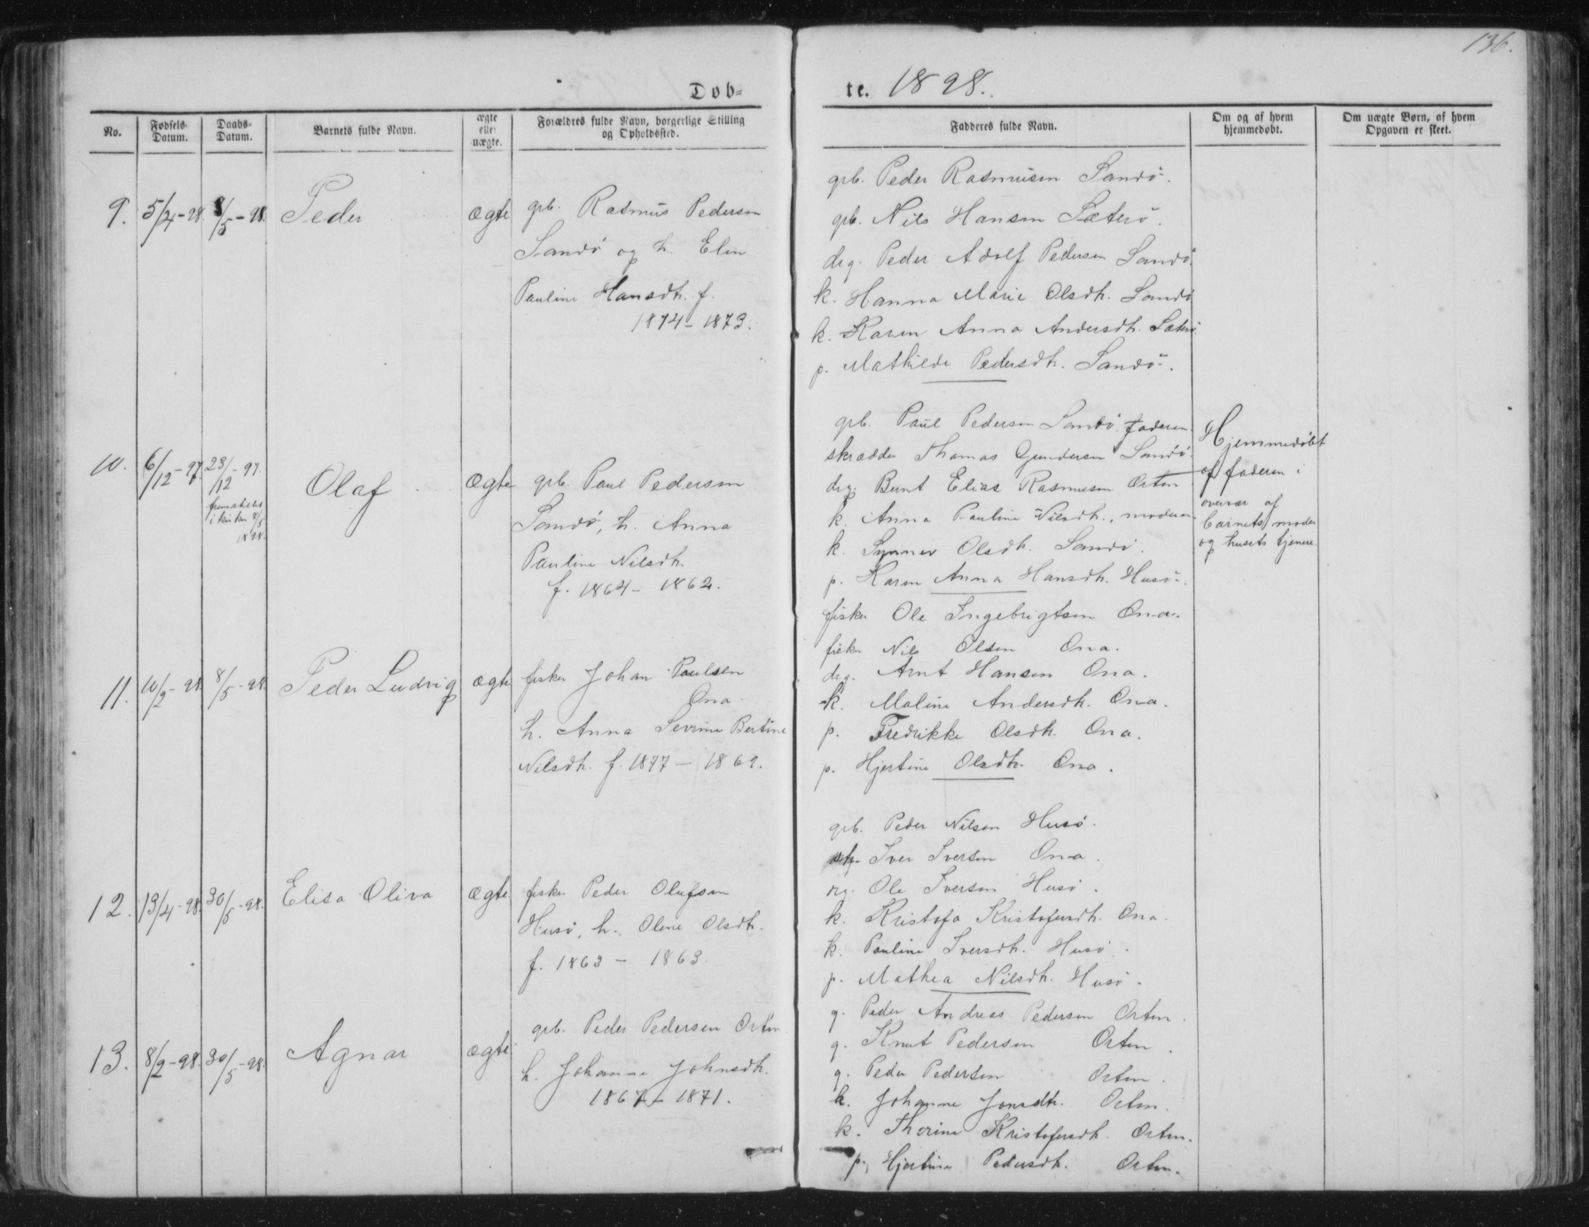 136.
Døb-
te. 1898.
No.
Fødsels-
Datum.
Daabs-
Datum.
Barnets fulde Navn.
ægte
eller
uægte.
Forældres fulde Navn, borgerlige Stilling
og Opholdssted.
Fadderes fulde Navn.
Om og af hvem
hjemmedøbt.
Om uægte Børn, af hvem
Opgaven er skeet.
9. 5/4-98. 8/5-98 Peder ægte
grb. Rasmus Pedersen
Sandø og h. Elen
Pauline Hansdh. f.
1874-1873.
grb. Peder Rasmusen Sandø.
grb. Nils Hansen Sæterø.
drg. Peder Adolf Pedersen Sandø.
k. Hanna Marie Olsdh. Sandø
k. Karen Anna Andersdh. Sæterø
p. Mathilde Pedersdh. Sandø.
10. 6/12-97. 28/12-97.
fremstillet
i kirken 8/5
1898.
Olaf ægte
grb. Paul Pedersen
Sandø, h. Anna
Pauline Nilsdh.
f. 1864-1862.
grb. Paul Pedersen Sandø, faderen
skrædder Thomas Gundersen Sandø.
drg. Bernt Elias Rasmusen Orten
k. Anna Pauline Nilsdh., moderen
k. Synnev Olsdh. Sandø.
p. Karen Anna Hansdh. Husø.
Hjemmedøbt
af faderen i
overvær af
barnets moder
og husets tjenere.
11. 10/2-98. 8/5-98. Peder Ludvig ægte
fisker Johan Paulsen
Ona
h. Anna Severine Bertine
Nilsdh. f. 1877-1869.
fisker Ole Ingebrigtsen Ona.
fisker Nils Olsen Ona.
drg. Arnt Hansen Ona.
k. Maline Andersdh. Ona.
p. Fredrikke Olsdh. Ona.
p. Hjertine Olsdh. Ona.
12. 13/4-98. 30/5-98. Elisa Oliva ægte
fisker Peder Olufsen
Husø, h. Oline Olsdh.
f. 1863 - 1863.
grb. Peder Nilsen Husø.
Iver Iversen Ona.
Ole Iversen Husø.
k. Kristofa Kristofersdh. Ona.
k. Pauline Iversdh. Husø.
p. Mathea Nilsdh. Husø.
13. 8/2-98. 30/5-98. Agnar ægte
grb. Peder Pedersen Orten
h. Johanne Johnsdh.
1867-1871.
g. Peder Andreas Pedersen Orten.
g. Knut Pedersen Orten.
g. Peder Pedersen Orten.
k. Johanne Jonsdh. Orten.
k. Thorine Kristofersdh. Orten.
p. Hjertine Pedersdh. Orten.